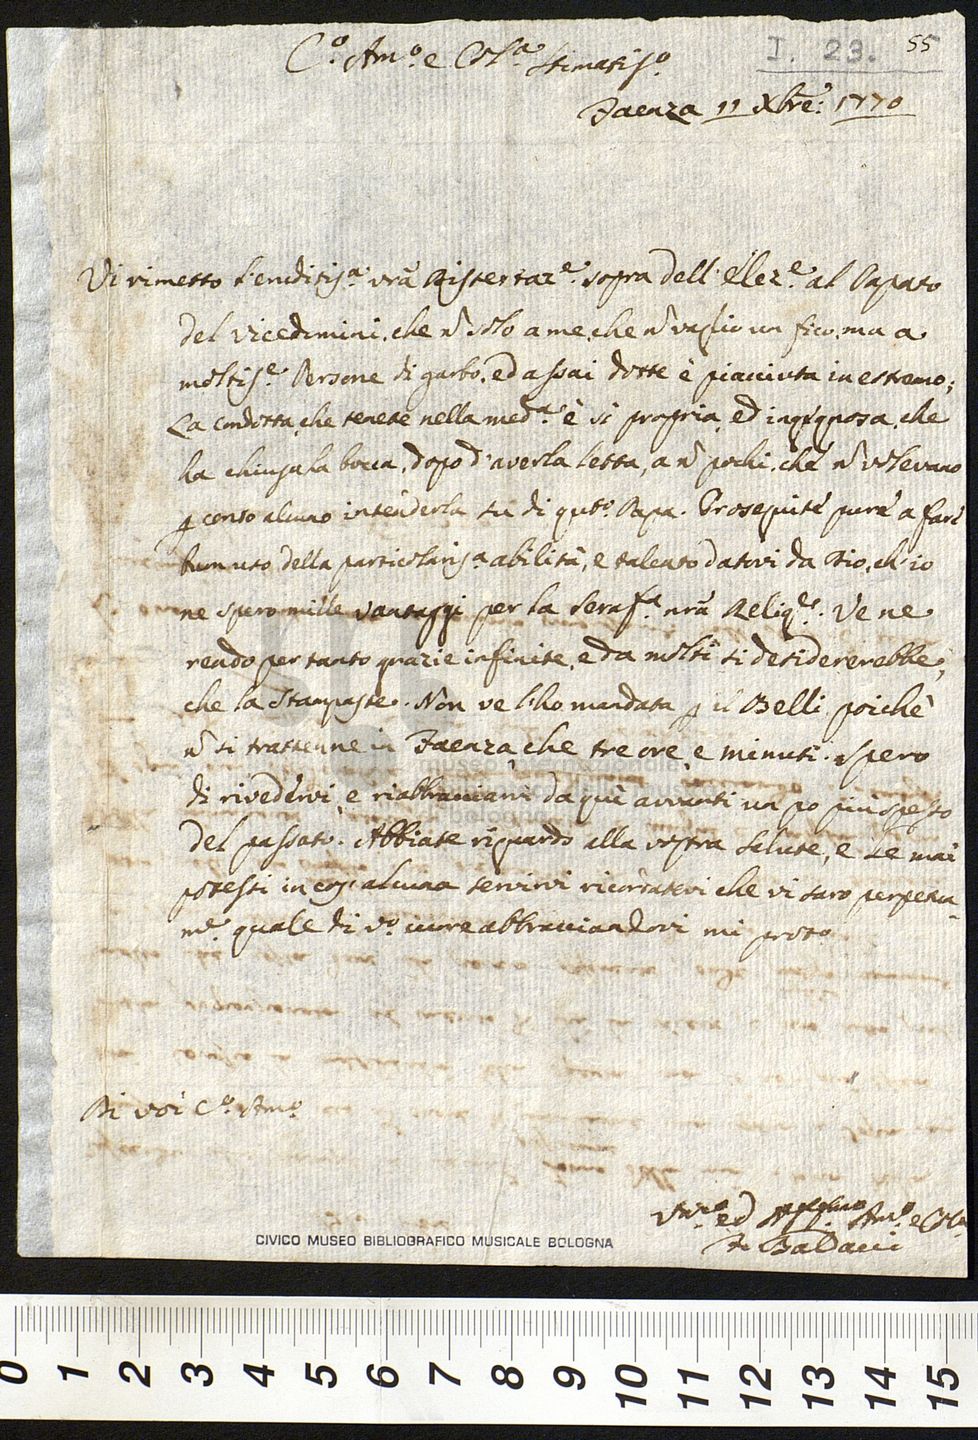 I. 23. 55
C.º Am.º e Coll.ª Stimatis.º
Faenza 11 Xbre: 1770
Vi rimetto l'eruditis.ª vrã Dissertaz.e sopra dell'elez.e al Papato
del Vicedimini, che ñ solo a me, che ñ vaglio un fico, ma a
moltis.e Persone di garbo, ed assai dotte è piacciuta in estremo;
La condotta, che tenete nella med.ª è sì propria, ed ingegnosa, che
ha chiusa la bocca, dopo d'averla letta, a ñ pochi, che ñ volevano
p conto alcuno intenderla su di qsto. Papa. Proseguite pure a fare
buon uso della particolaris.ª abilità, e talento datovi da Dio, ch'io
ne spero mille vantaggi per la Seraf.ª nrã Relig.e. Ve ne
rendo per tanto grazie infinite, e da molti si desidererebbe,
che la stampaste. Non ve l'ho mandata p il Belli, poichè
ñ si trattenne in Faenza, che tre ore, e minuti. Spero
di rivedervi, e riabbracciarvi da quì avvanti un po più spesso
del passato. Abbiate riguardo alla vostra salute, e se mai
potessi in cos' alcuna servirvi ricordatevi che vi saro perpetua-
m.e quale di v.º cuore abbracciandovi mi proto
Di voi C.º Am.º
ed Am.º e Coll.ª
Fr. Baldacci
museo internazionale
musica
bologna
CIVICO MUSEO BIBLIOGRAFICO MUSICALE BOLOGNA
0 1 2 3 4 5 6 7 8 9 10 11 12 13 14 15